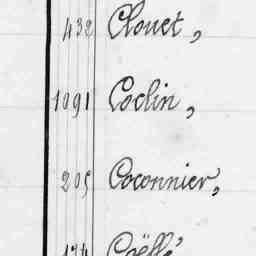 432 Clouet,
1091 Coclin,
205 Coconnier,
174 Coëffé